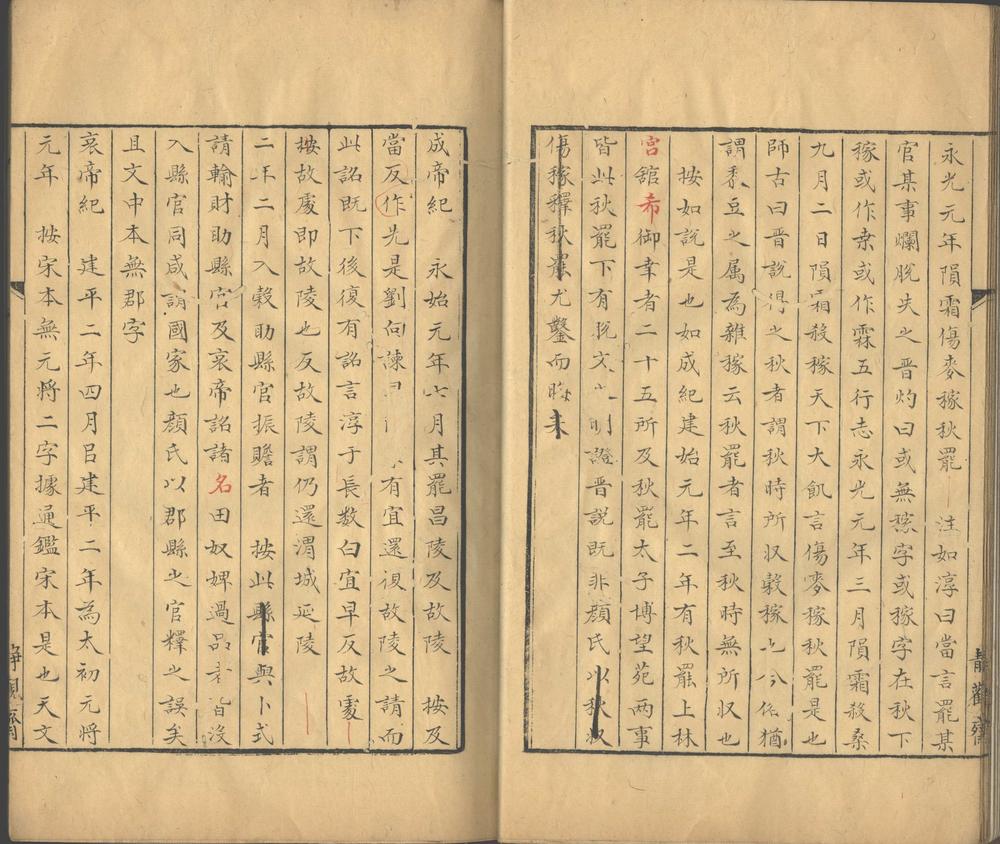 永光元年隕霜傷麥稼秋罷 注如淳曰當言罷某
官某事爛脫失之晋灼曰或無稼字或稼字在秋下
稼或作桒或作霖五行志永光元年三月隕霜殺桑
九月二日隕霜殺稼天下大飢言傷麥稼秋罷是也
師古曰晋說得之秋者謂秋時所収穀稼也今俗猶
謂黍豆之属為雜稼云秋罷者言至秋時無所収也
按如說是也如成紀建始元年二年有秋罷上林
宮舘希御幸者二十五所及秋罷太子博望苑两事
皆此秋罷下有脫文之明證晋說既非顔氏以秋収
傷稼釋秋罷尤鑿而
成帝紀 永始元年七月其罷昌陵及故陵 按及
當反作先是劉向諫 有宜還復故陵之請而
此詔既下後復有詔言淳于長数白宜早反故處
按故處即故陵也反故陵謂仍還渭城延陵
二年二月入穀助縣官振贍者 按此縣官與卜式
請輸財助縣官及哀帝詔諸名田奴婢過品者皆沒
入縣官同咸謂國家也顔氏以郡縣之官釋之誤矣
且文中本無郡字
哀帝紀 建平二年四月㠯建平二年為太初元將
元年 按宋本無元將二字據通鑑宋本是也天文
靜觀齋
靜觀齋